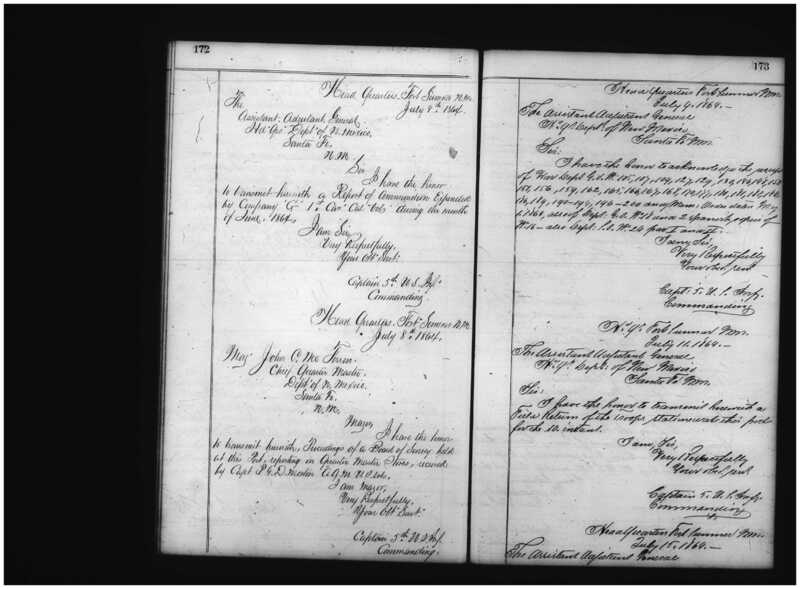 172
Head Quarters, Fort Sumner N.M.
July 8th 1864.
The
Assistant Adjutant General
Hd. Qrs. Dept. of N. Mexico,
Santa Fe.
N.M.
Sir
I have the honor
to transmit herewith a Report of Ammunition Expended
by Company "G" 1st Cav. Cal. Vols. during the month
of June, 1864.
I am Sir,
Very Respectfully,
Your Obt. Servt.
Captain 5th U.S. Inf.
Commanding
Head Quarters, Fort Sumner N.M.
July 8th 1864.
Maj. John C. Mc Ferran
Chief Quarter Master
Dept. of N. Mexico.
Santa Fe.
N.M.
Major,
I have the honor
to transmit herewith, Proceedings of a Board of Survey held
at this Post, reporting on Quarter Master Stores, received
by Capt.
I am Major,
Very Respectfully,
Your Obt. Servt.
Captain 5th U.S. Inf.
Commanding.
173
Head Quarters Fort Sumner N.M.
July 9, 1864.—
The Assistant Adjutant General
Hd. Qrs. Dept. of New Mexico
Santa Fe N.M.
Sir:
I have the honor to acknowledge the receipt
of War Dept. G.O.
I am, Sir,
Very Respectfully
Your Obd. Servt
Capt. 5. U.S. Infy.
Commanding
Hd. Qrs. Fort Sumner N.M.
July 11, 1864.—
The Assistant Adjutant General
Hd. Qrs. Dept. of New Mexico
Santa Fe N.M.
Sir:
I have the honor to transmit herewith a
Return of the troops stationed at this post
for the 10. instant.
I am, Sir,
Very Respectfully
Your Obd. Servt
Captain 5. U.S. Infy.
Commanding
Head Quarters Fort Sumner N.M.
July 15, 1864.—
The Assistant Adjutant General